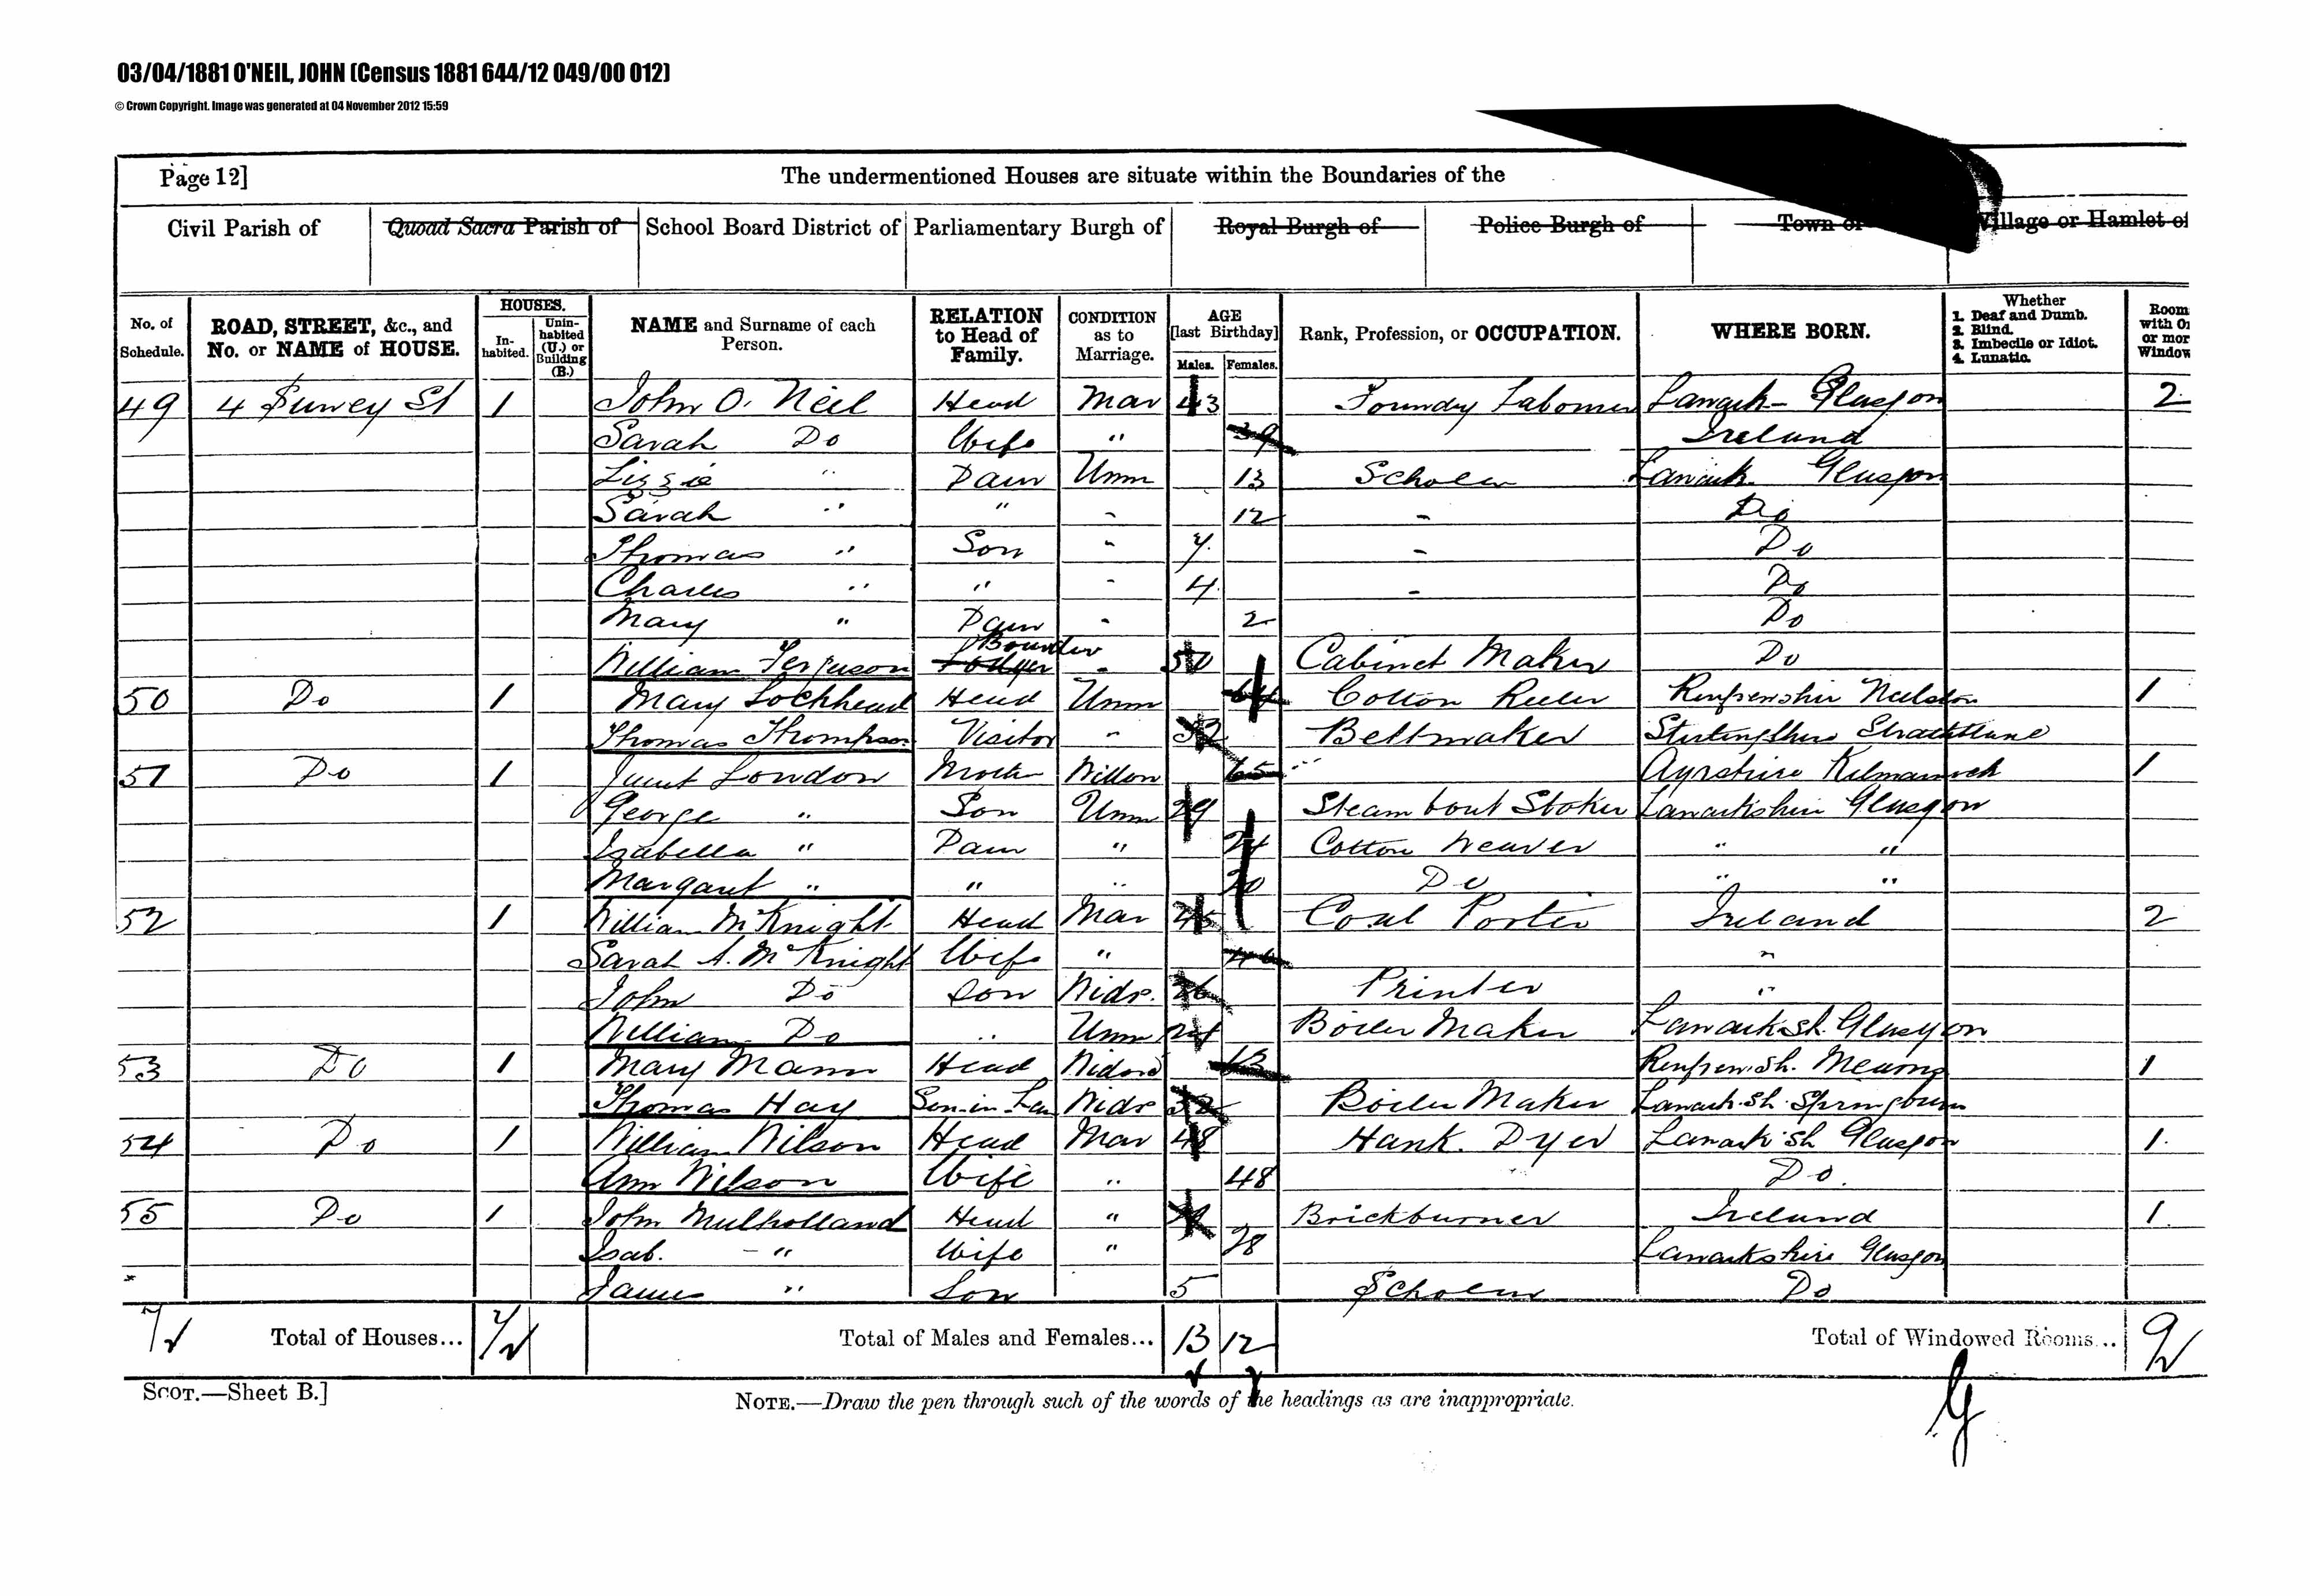 03/04/1881 O'NEIL, JOHN (Census 1881 644/12 049/00 012)
© Crown Copyright. Image was generated at 04 November 2012 15:59
Page 12] The undermentioned Houses are situate within the Boundaries of the
Civil Parish of Quoad Sacra Parish of School Board District of Parliamentary Burgh of Royal Burgh of Police Burgh of Town of Village or Hamlet of
No. of Schedule. ROAD, STREET, &c., and No. or NAME of HOUSE. HOUSES. In-habited. Unin-habited (U.) or Building (B.) NAME and Surname of each Person. RELATION to Head of Family. CONDITION as to Marriage. AGE [last Birthday] Males. Females. Rank, Profession, or OCCUPATION. WHERE BORN. Whether 1. Deaf and Dumb. 2. Blind. 3. Imbecile or Idiot. 4. Lunatic. Room with or mor Window
49 4 Surrey St 1 John O. Neil Head Mar 43 Foundry Labourer Lanark- Glasgow 2
Sarah Do Wife " 39 Ireland
Lizzie " Daur Unm 13 Scholar Lanark Glasgow
Sarah " " - 12 - Do
Thomas " Son - 7 - Do
Charles " " - 4 - Do
Mary " Daur - 2 Do
William Ferguson Boarder - 50 Cabinet Maker Do
50 Do 1 Mary Lockhead Head Unm 64 Cotton Reeler Renfrewshir Neilston 1
Thomas Thompson Visitor - Beltmaker Stirlingshire
51 Do 1 London Widow 65 Ayrshire Kilmarnock 1
George " Son Unm 29 Steam boat Stoker Lanarkshire Glasgow
Isabella " Daur " 24 Cotton Weaver " "
Margaret " " " 20 Do " "
52 1 William McKnight Head Mar 45 Coal Porter Ireland 2
Sarah A. McKnight Wife " "
John Do Son Widr. 26 Printer "
William Do " Unm 24 Boiler Maker Lanarksh. Glasgow
53 Do 1 Mary Mann Head Widow 63 Renfrewsh. Mearns 1
Thomas Hay Son-in-Law Widr 32 Boiler Maker Lanark.sh. Springburn
54 Do 1 William Wilson Head Mar 48 Hank. Dyer Lanark'sh Glasgow 1.
Ann Wilson Wife " 48 Do.
55 Do 1 John Mulholland Head " Brickburner Ireland 1.
Isab. - " Wife " 28 Lanarkshire Glasgow
James " Son 5 Scholar Do
7 Total of Houses... 7 Total of Males and Females... 13 12 Total of Windowed Rooms... 9
SCOT.—Sheet B.] NOTE.—Draw the pen through such of the words of the headings as are inappropriate.